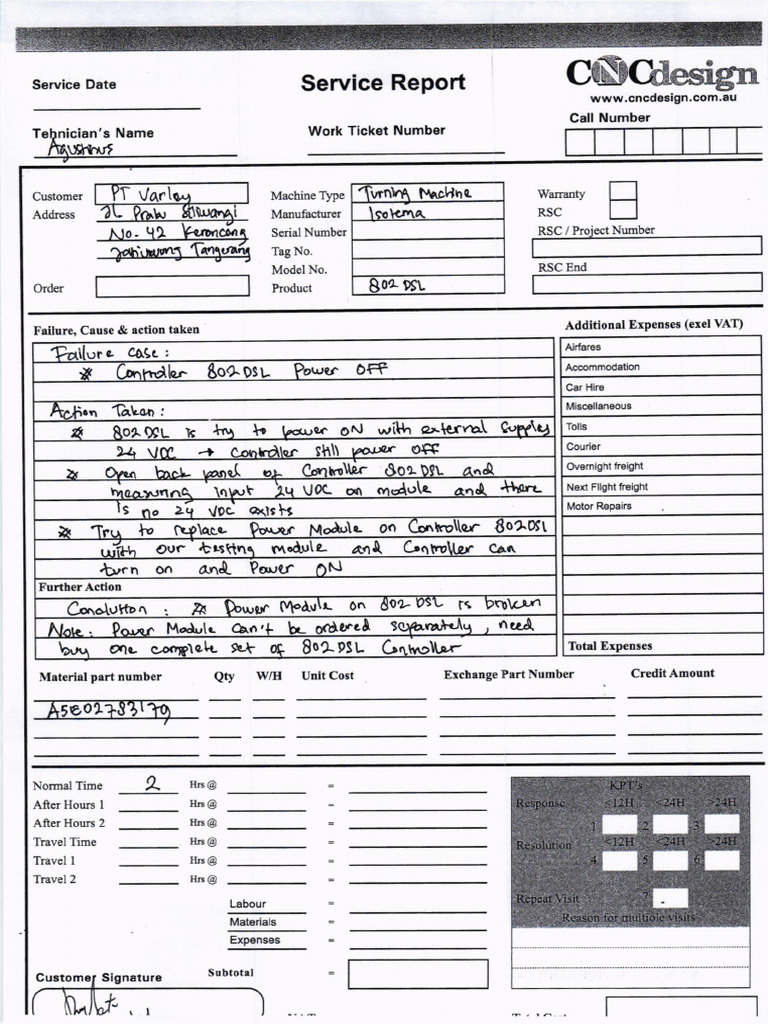 CNCdesign
Service Date
Service Report
www.cncdesign.com.au
Call Number
Tehnician's Name
Agustinus
Work Ticket Number
Customer PT Varley
Address
No. 42 Keroncong
Jatiuwung Tangerang
Order
Machine Type Turning Machine
Manufacturer Isotema
Serial Number
Tag No.
Model No.
Product 802 DSL
Warranty
RSC
RSC / Project Number
RSC End
Failure, Cause & action taken
Failure case :
Controller 802 DSL Power OFF
Action Taken :
802 DSL is try to power ON with external supplay
24 VDC → Controller still power OFF
Open back panel of Controller 802 DSL and
measuring input 24 VDC on module and there
is no 24 VDC exists
Try to replace Power Module on Controller 802DSL
with our testing module and Controller can
turn on and Power ON
Further Action
Conclution : Power Module on 802 DSL is broken
Note : Power Module can't be ordered separately, need
buy one complete set of 802 DSL Controller
Additional Expenses (exel VAT)
Airfares
Accommodation
Car Hire
Miscellaneous
Tolls
Courier
Overnight freight
Next Flight freight
Motor Repairs
Total Expenses
Material part number Qty W/H Unit Cost Exchange Part Number Credit Amount
A5E02783179
Normal Time 2 Hrs @ =
After Hours 1 Hrs @ =
After Hours 2 Hrs @ =
Travel Time Hrs @ =
Travel 1 Hrs @ =
Travel 2 Hrs @ =
Labour =
Materials =
Expenses =
Subtotal =
KPT's
Response <12H <24H >24H
1 2 3
Resolution <12H <24H >24H
4 5 6
Repeat Visit 7 -
Reason for multiple visits
Customer Signature